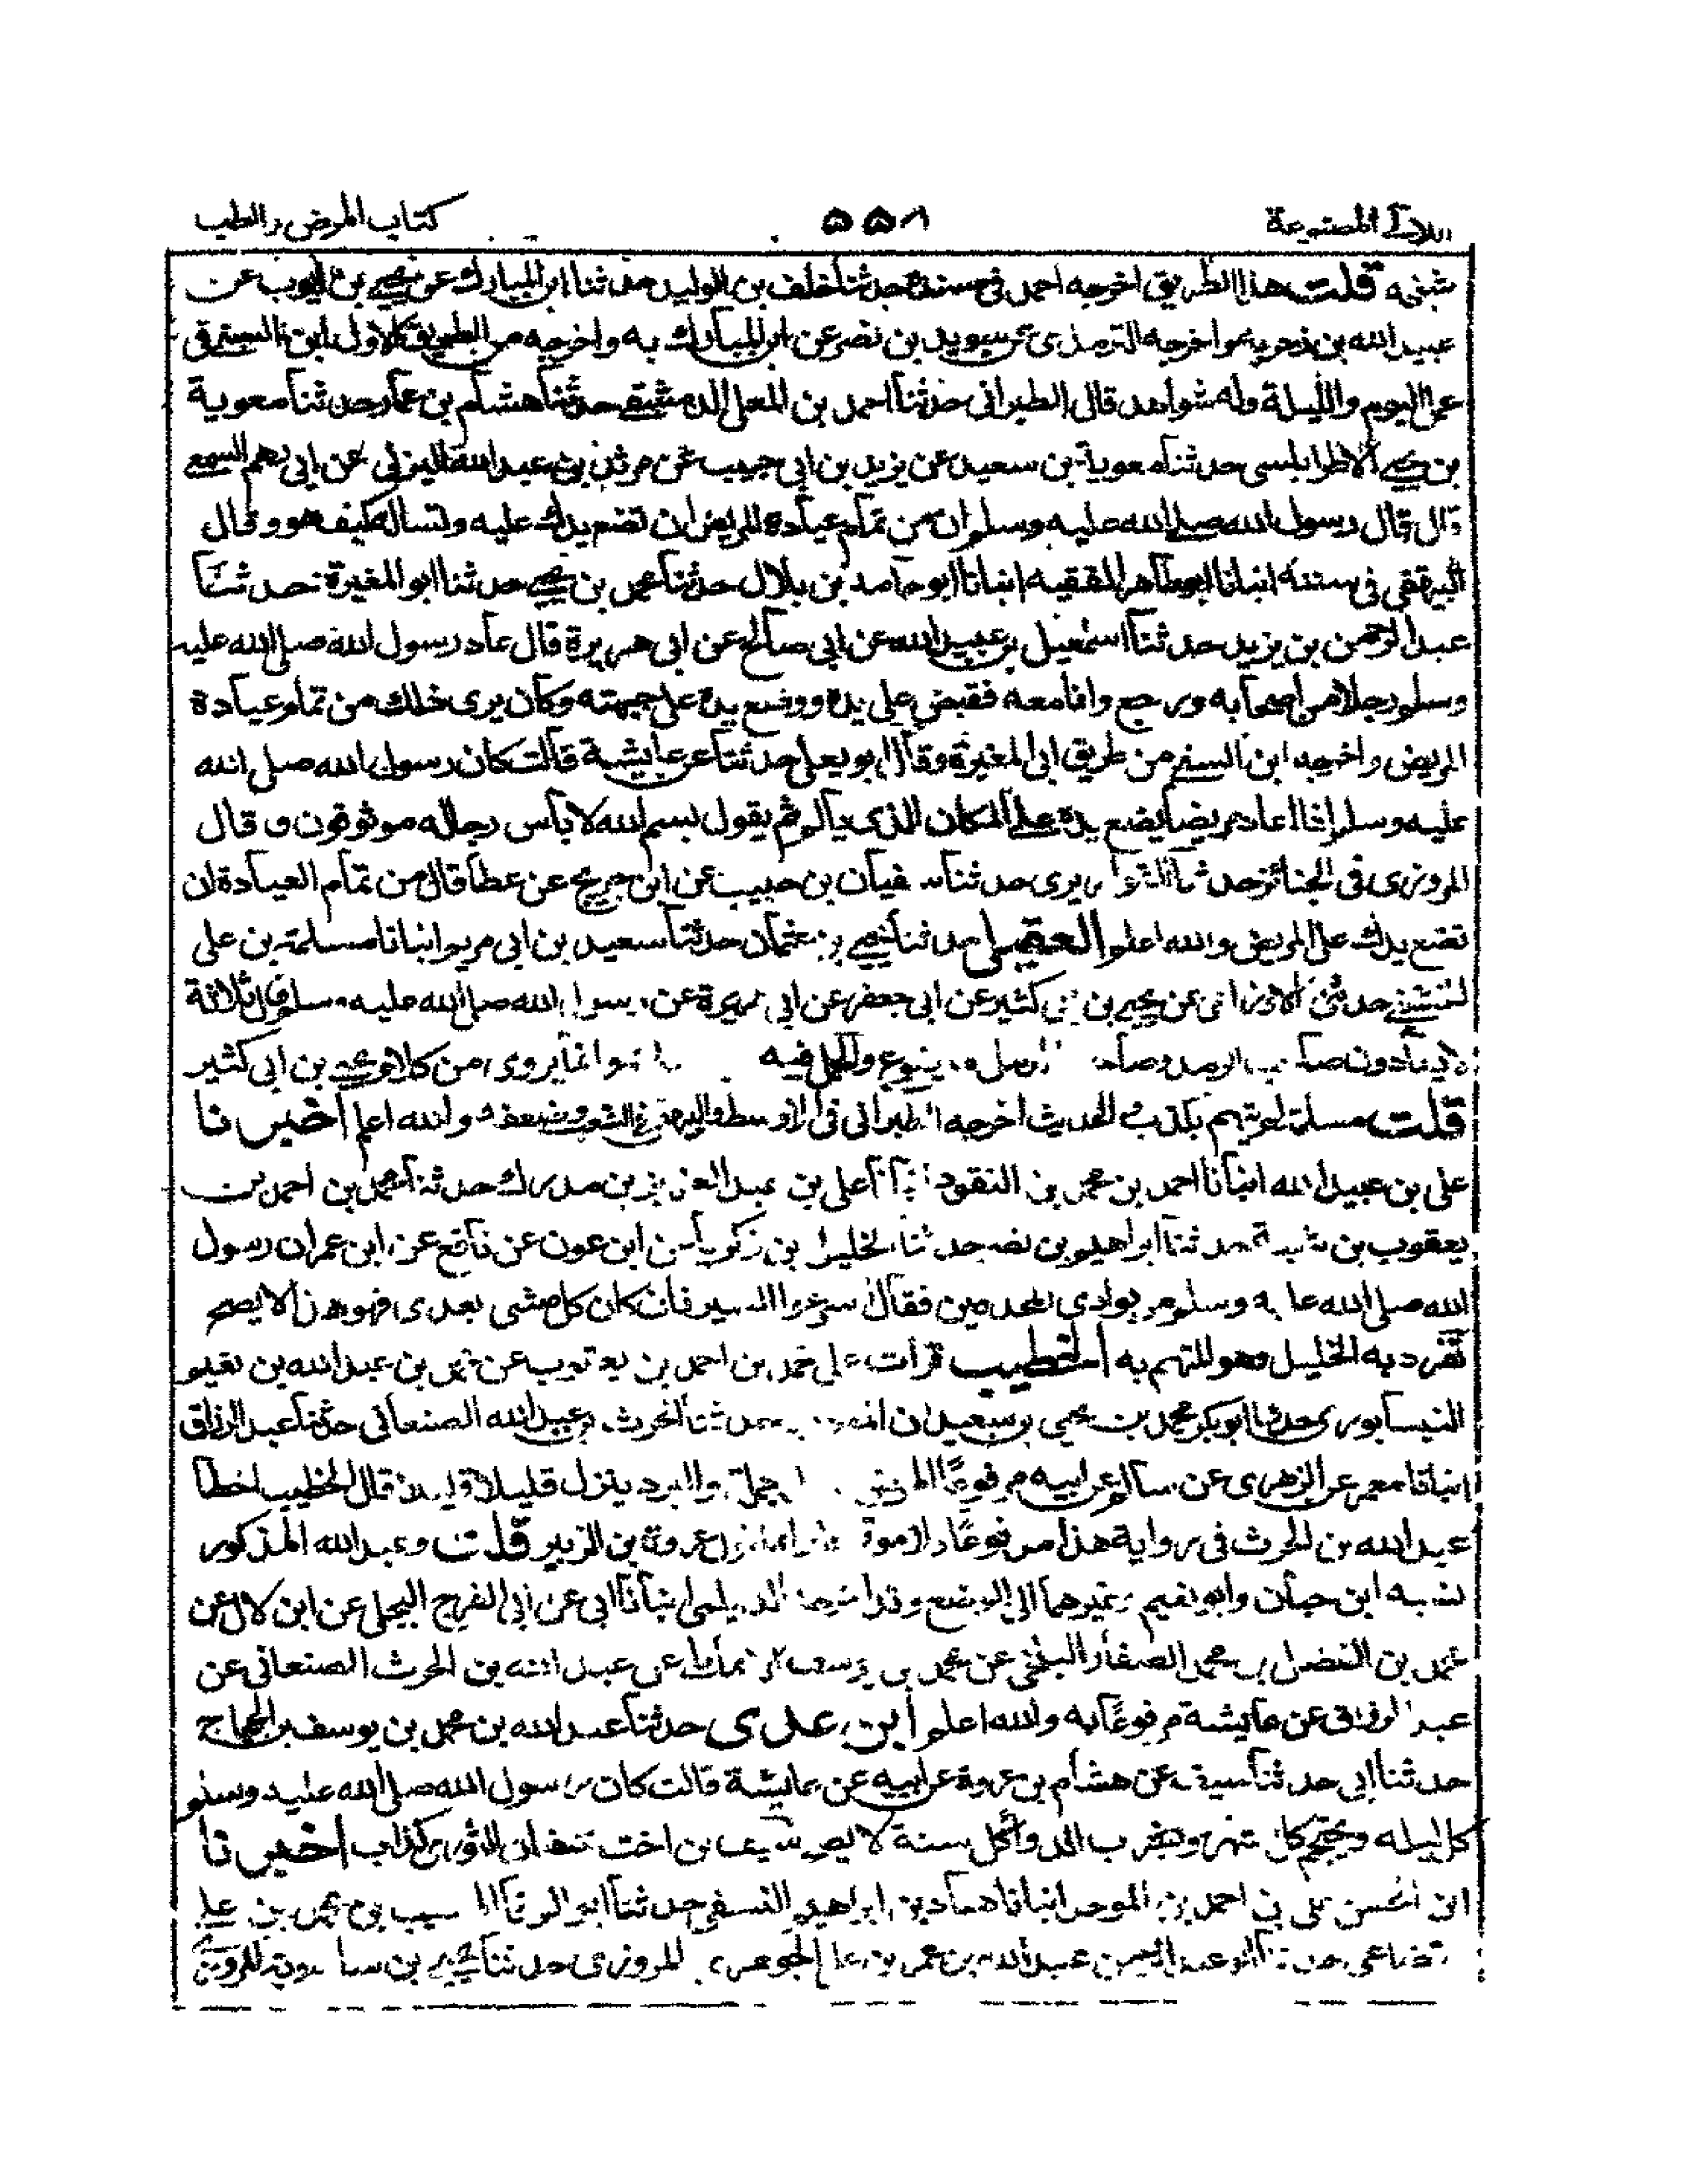 اللآلئ المصنوعة ٥٥٨ كتاب المرض والطب
قلت هذا الطريق اخرجه احمد فى مسنده حدثنا خلف بن الوليد حدثنا ابن المبارك عن يحيى بن ايوب عن
عبيد الله بن زحر به واخرجه الترمذى عن سويد بن نصر عن ابن المبارك به واخرجه من الطريق الاول ابن السنى فى
عمل اليوم والليلة وله شواهد قال الطبرانى حدثنا احمد بن المعلى الدمشقى حدثنا هشام بن عمار حدثنا معوية
بن يحيى الاطرابلسى حدثنا معوية بن سعيد عن يزيد بن ابى حبيب عن مرثد بن عبد الله اليزنى عن ابى رهم السمعى
قال قال رسول الله صلى الله عليه وسلم ان من تمام عيادة المريض ان تضع يدك عليه وتساله كيف هو وقال
البيهقى فى سننه انبانا ابو طاهر الفقيه انبانا ابو حامد بن بلال حدثنا محمد بن يحيى حدثنا ابو المغيرة حدثنا
عبد الرحمن بن يزيد حدثنا اسمعيل بن عبيد الله عن ابى صالح عن ابى هريرة قال عاد رسول الله صلى الله عليه
وسلم رجلا من اصحابه وجع وانا معه فقبض على يده ووضع يده على جبهته وكان يرى ذلك من تمام عيادة
المريض واخرجه ابن السنى من طريق ابى المغيرة وقال ابو يعلى حدثنا عن عايشة قالت كان رسول الله صلى الله
عليه وسلم اذا عاد مريضا يضع يده على المكان الذى يالم ثم يقول بسم الله لا بأس رجاله موثوقون وقال
المروزى فى الجنائز حدثنا القواريرى حدثنا سفيان بن حبيب عن ابن جريج عن عطا قال من تمام العيادة ان
تضع يدك على المريض والله اعلم العقيلى حدثنا يحيى بن عثمان حدثنا سعيد بن ابى مريم انبانا مسلمة بن على
الخشنى حدثنى الاوزاعى عن يحيى بن ابى كثير عن ابى جعفر عن ابى هريرة عن رسول الله صلى الله عليه وسلم قال ثلاثة
لا يعادون صاحب الرمد وصاحب الدمل وانما يروى من كلام يحيى بن ابى كثير
قلت مسلمة لم يتهم بكذب والحديث اخرجه الطبرانى فى الاوسط والبيهقى فى الشعب وضعفه والله اعلم اخبرنا
على بن عبيد الله انبانا احمد بن محمد بن النقور انبانا على بن عبد العزيز بن مدرك حدثنا محمد بن احمد بن
يعقوب بن شيبة حدثنا ابراهيم بن نصر حدثنا الخليل بن زكريا عن ابن عون عن نافع عن ابن عمر ان رسول
الله صلى الله عليه وسلم مر بوادى المجذمين فقال اسرعوا السير فان كان كل شى يعدى فهو هذا لا يصح
تفرد به الخليل وهو المتهم به الخطيب قرات على محمد بن احمد بن يعقوب عن محمد بن عبد الله بن نعيم
النيسابورى حدثنا ابوبكر محمد بن يحيى بن سعيدان حدثنا الحرث بن عبيد الله الصنعانى حدثنا عبد الرزاق
انبانا معمر عن الزهرى عن سالم عن ابيه مرفوعا المرض ينزل جملة والبرء ينزل قليلا قليلا قال الخطيب اخطا
عبد الله بن الحرث فى رواية هذا مرفوعا عروة بن الزبير قلت وعبد الله المذكور
نسبه ابن حبان وابو نعيم وغيرهما الى الوضع وقد اخرجه الديلمى انبانا ابى عن ابى الفرج البجلى عن ابن لال عن
محمد بن الفضل بن محمد الصفار البلخى عن محمد بن يوسف عن عبد الله بن الحرث الصنعانى عن
عبد الرزاق عن عايشة مرفوعا به والله اعلم ابن عدى حدثنا عبد الله بن محمد بن يوسف بن الحجاج
حدثنا ابى حدثنا سيف عن هشام بن عروة عن ابيه عن عايشة قالت كان رسول الله صلى الله عليه وسلم
كل ليلة ويحتجم كل شهر ويشرب الدواء كل سنة لا يصح سيف بن اخت سفيان الثورى كذاب اخبرنا
ابو الحسن على بن احمد بن الموحد انبانا هناد بن ابراهيم النسفى حدثنا ابو المسيب بن محمد بن على
القضاعى حدثنا عبد الله بن عمر بن على الجوهرى المروزى حدثنا يحيى بن المروزى